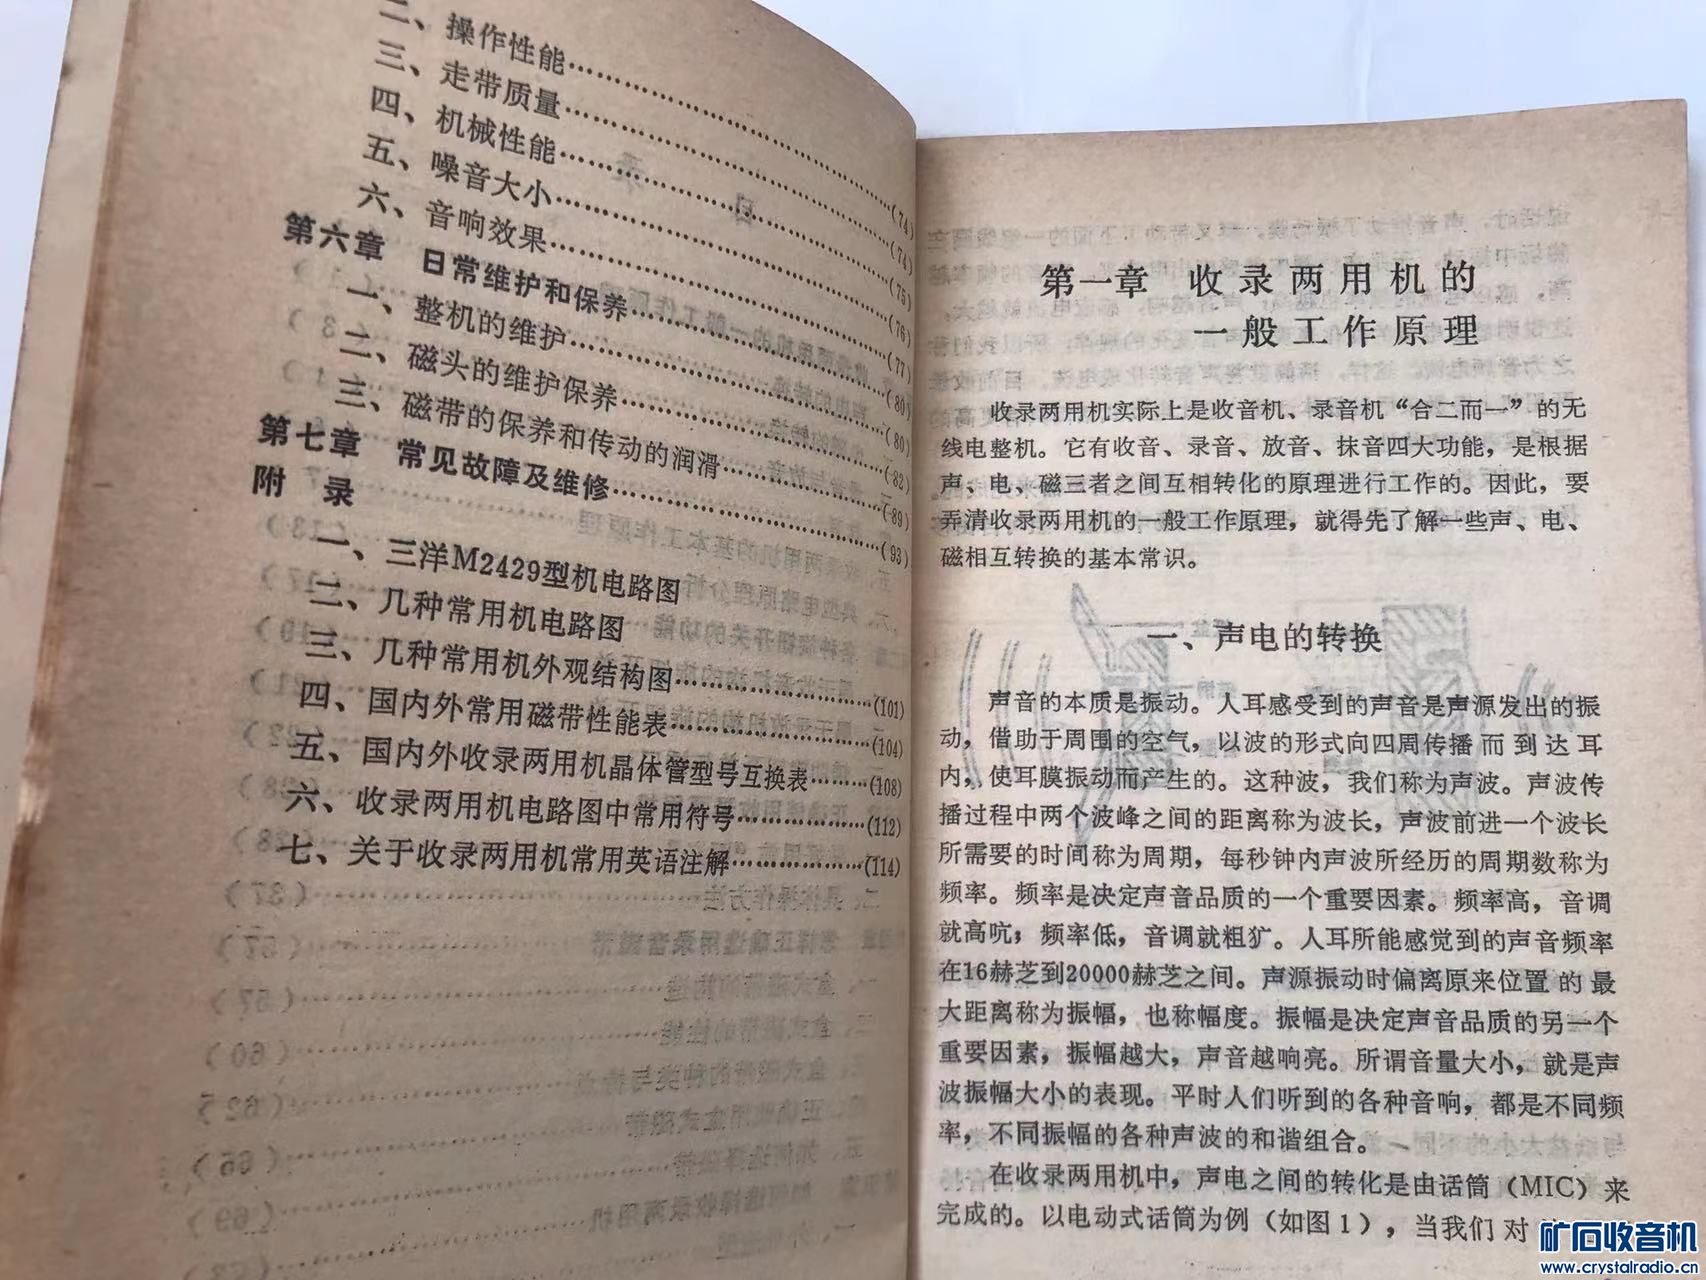 二、操作性能……(74)
三、走带质量……(74)
四、机械性能……(75)
五、噪音大小……(76)
六、音响效果……(77)
第六章 日常维护和保养……(80)
一、整机的维护……(80)
二、磁头的维护保养……(82)
三、磁带的保养和传动的润滑……(89)
第七章 常见故障及维修……(93)
附 录
一、三洋M2429型机电路图
二、几种常用机电路图
三、几种常用机外观结构图……(101)
四、国内外常用磁带性能表……(104)
五、国内外收录两用机晶体管型号互换表……(108)
六、收录两用机电路图中常用符号……(112)
七、关于收录两用机常用英语注解……(114)
第一章 收录两用机的
一般工作原理
收录两用机实际上是收音机、录音机“合二而一”的无
线电整机。它有收音、录音、放音、抹音四大功能，是根据
声、电、磁三者之间互相转化的原理进行工作的。因此，要
弄清收录两用机的一般工作原理，就得先了解一些声、电、
磁相互转换的基本常识。
一、声电的转换
声音的本质是振动。人耳感受到的声音是声源发出的振
动，借助于周围的空气，以波的形式向四周传播而到达耳
内，使耳膜振动而产生的。这种波，我们称为声波。声波传
播过程中两个波峰之间的距离称为波长，声波前进一个波长
所需要的时间称为周期，每秒钟内声波所经历的周期数称为
频率。频率是决定声音品质的一个重要因素。频率高，音调
就高吭；频率低，音调就粗犷。人耳所能感觉到的声音频率
在16赫芝到20000赫芝之间。声源振动时偏离原来位置的最
大距离称为振幅，也称幅度。振幅是决定声音品质的另一个
重要因素，振幅越大，声音越响亮。所谓音量大小，就是声
波振幅大小的表现。平时人们听到的各种音响，都是不同频
率，不同振幅的各种声波的和谐组合。
在收录两用机中，声电之间的转化是由话筒（MIC）来
完成的。以电动式话筒为例（如图1），当我们对
矿石收音机
www.crystalradio.cn